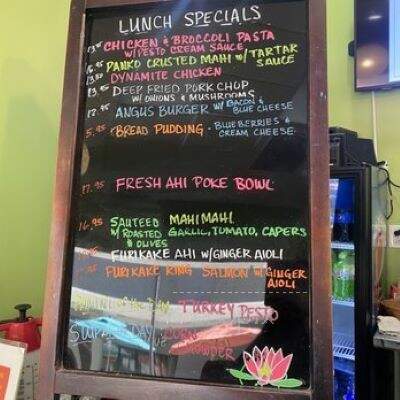 LUNCH SPECIALS
CHICKEN & BROCCOLI PASTA
W/PESTO CREAM SAUCE
PANKO CRUSTED MAHI W/ TARTAR
SAUCE
DYNAMITE CHICKEN
DEEP FRIED PORK CHOP
W/ ONIONS & MUSHROOMS
ANGUS BURGER W/ BACON &
BLUE CHEESE
5.95 BREAD PUDDING - BLUEBERRIES &
CREAM CHEESE
17.95 FRESH AHI POKE BOWL
16.95 SAUTEED MAHI MAHI
W/ ROASTED GARLIC, TOMATO, CAPERS
& OLIVES
FURIKAKE AHI W/GINGER AIOLI
FURIKAKE KING SALMON W/ GINGER
AIOLI
TURKEY PESTO
CORN
CHOWDER